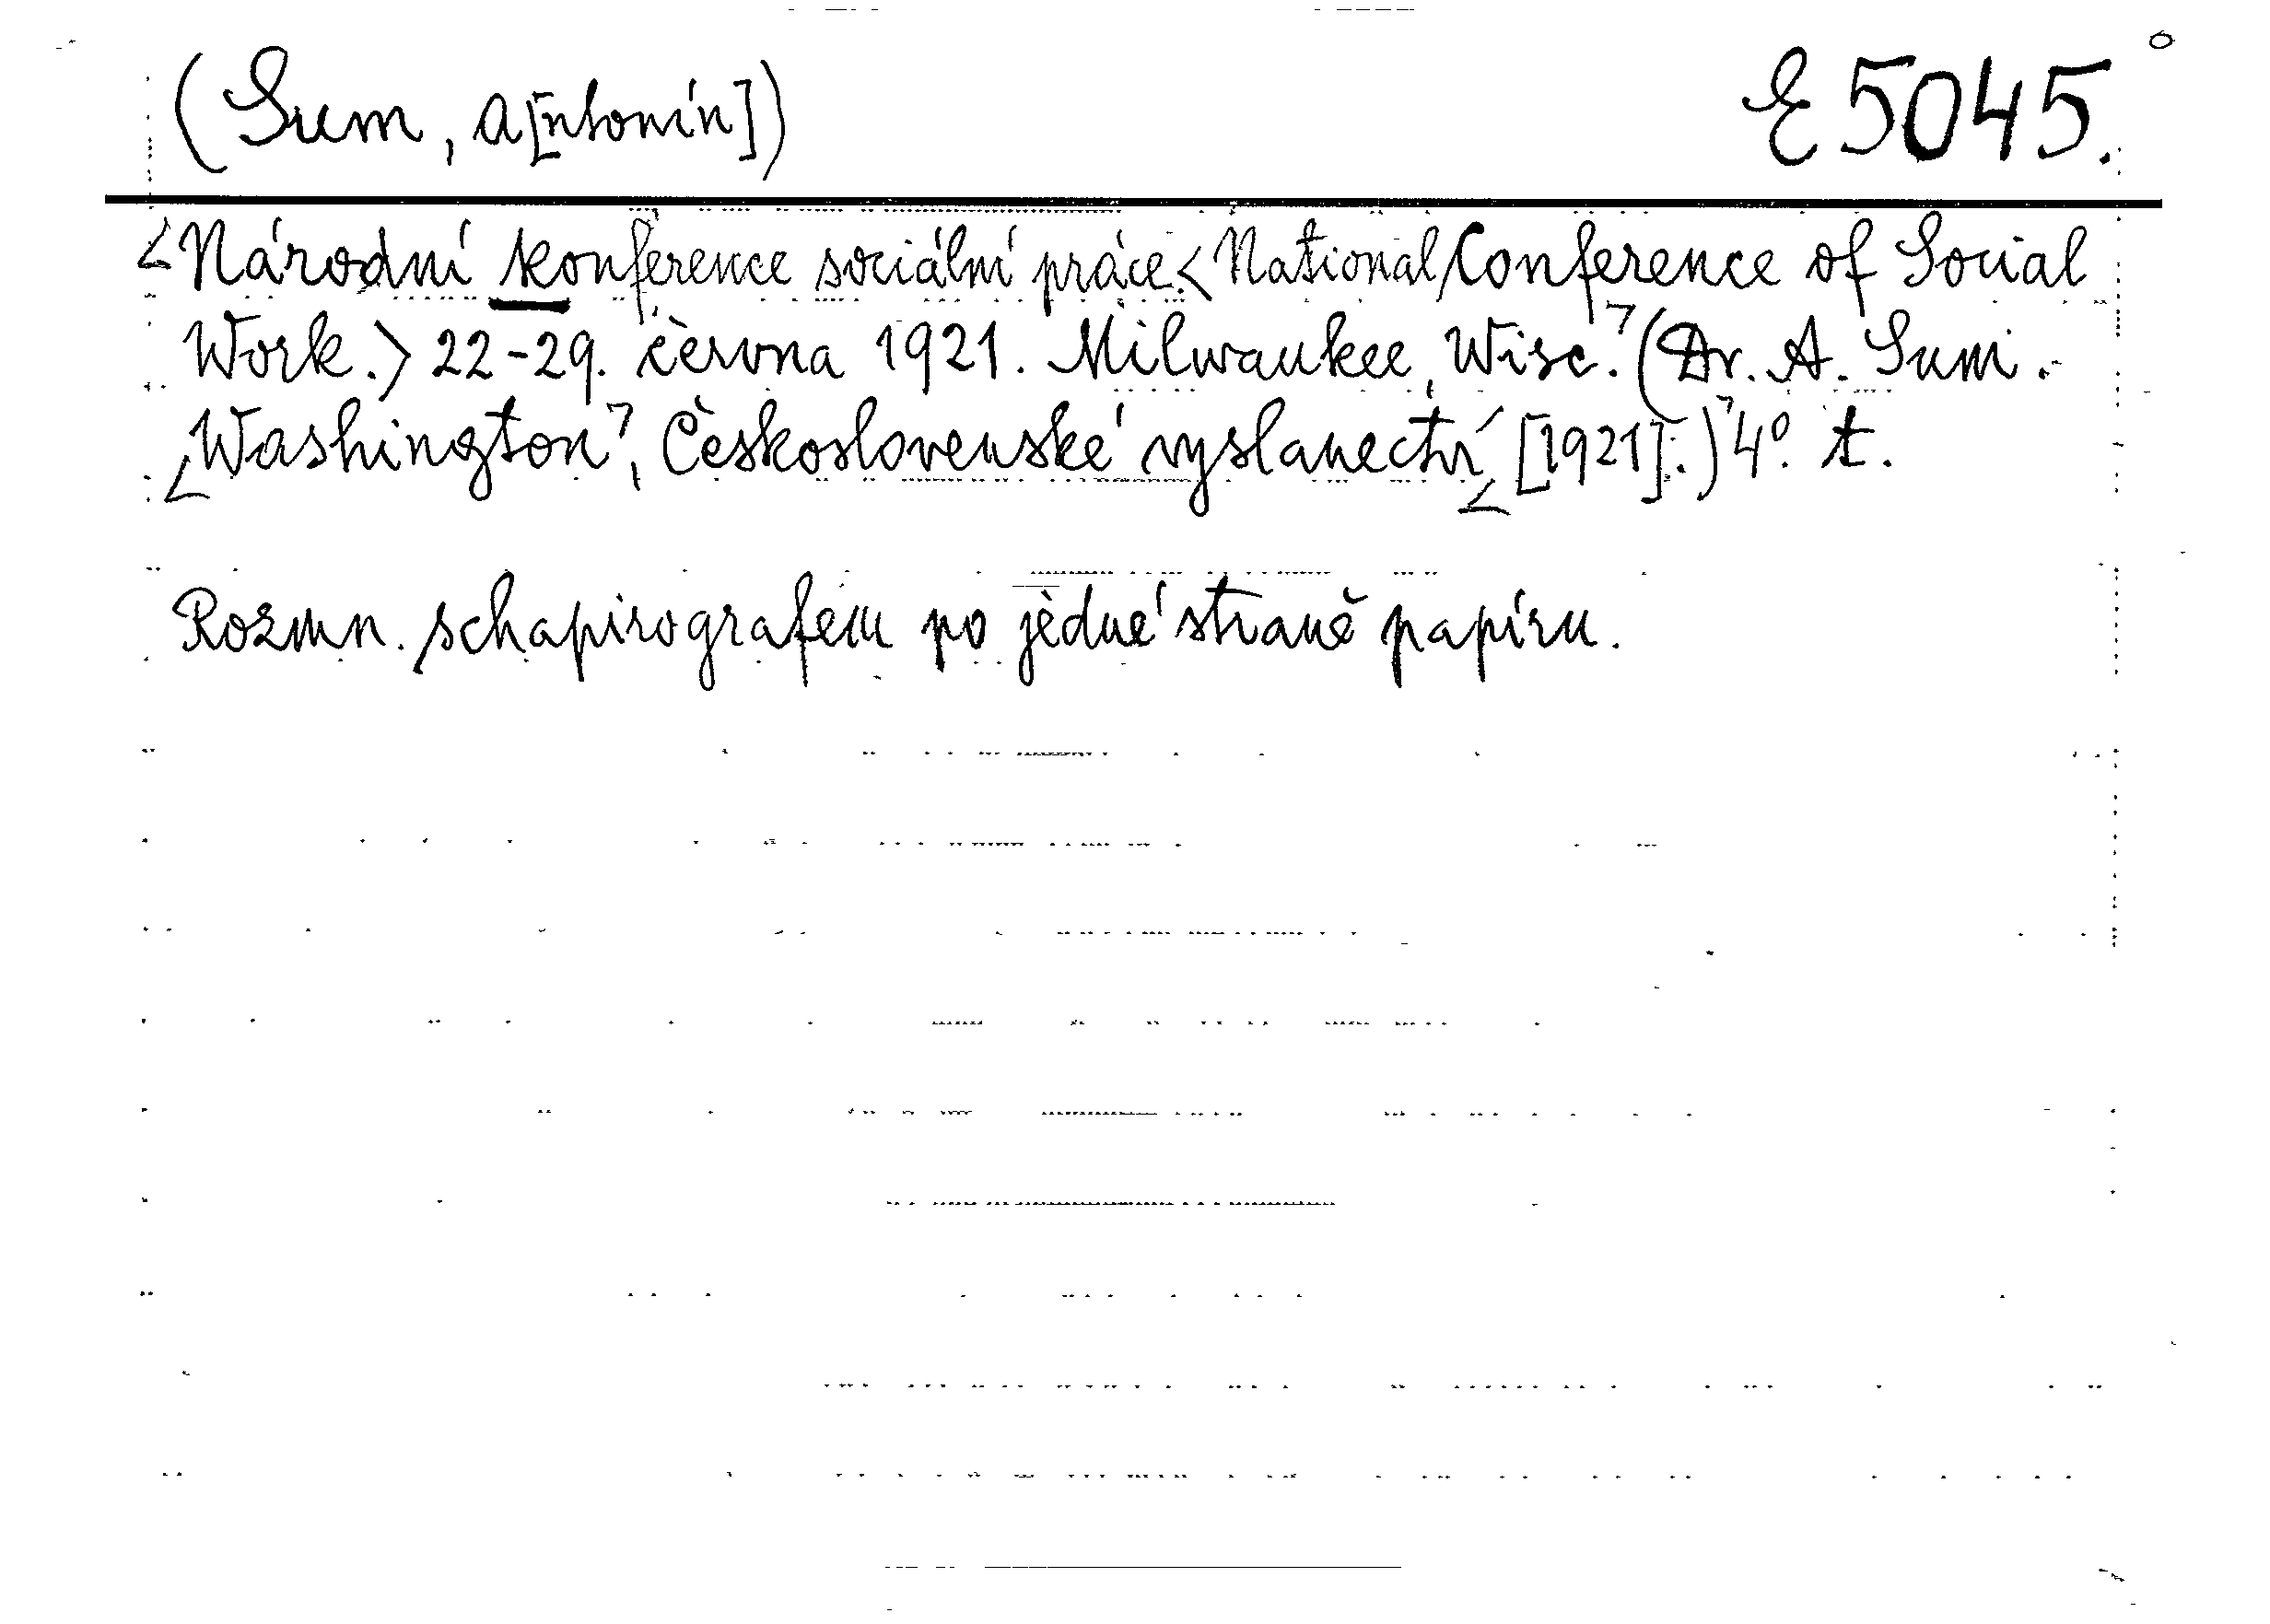 (Sum, A[ntonín]) E 5045.
<Národní konference sociální práce.<National Conference of Social
Work.> 22-29. června 1921. Milwaukee, Wisc. (Dr. A. Sum.
Washington, Československé vyslanectví [1921].) 4°. t.
Rozmn. schapirografem po jedné straně papíru.